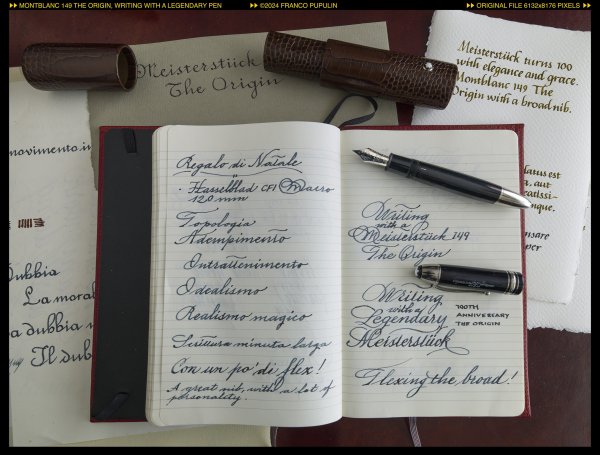 MONTBLANC 149 THE ORIGIN, WRITING WITH A LEGENDARY PEN
©2024 FRANCO PUPULIN
ORIGINAL FILE 6132x8176 PIXELS
Meisterstück
The Origin
Meisterstück turns 100
with elegance and grace.
Montblanc 149 The
Origin with a broad nib.
movimento.in
Dubbia
La moral
a dubbia
Il dubb
Regalo di Natale
· Hasselblad CFI Macro
120 mm
Topologia
Adempimento
Intrattenimento
Idealismo
Realismo magico
Scrittura minuta larga
Con un po' di flex!
A great nib, with a lot of
personality.
Writing
with a
Meisterstück 149
The Origin
Writing
with a
Legendary
Meisterstück
100TH
ANNIVERSARY
THE ORIGIN
Flexing the broad!
est
aut
nque.
nsare
per